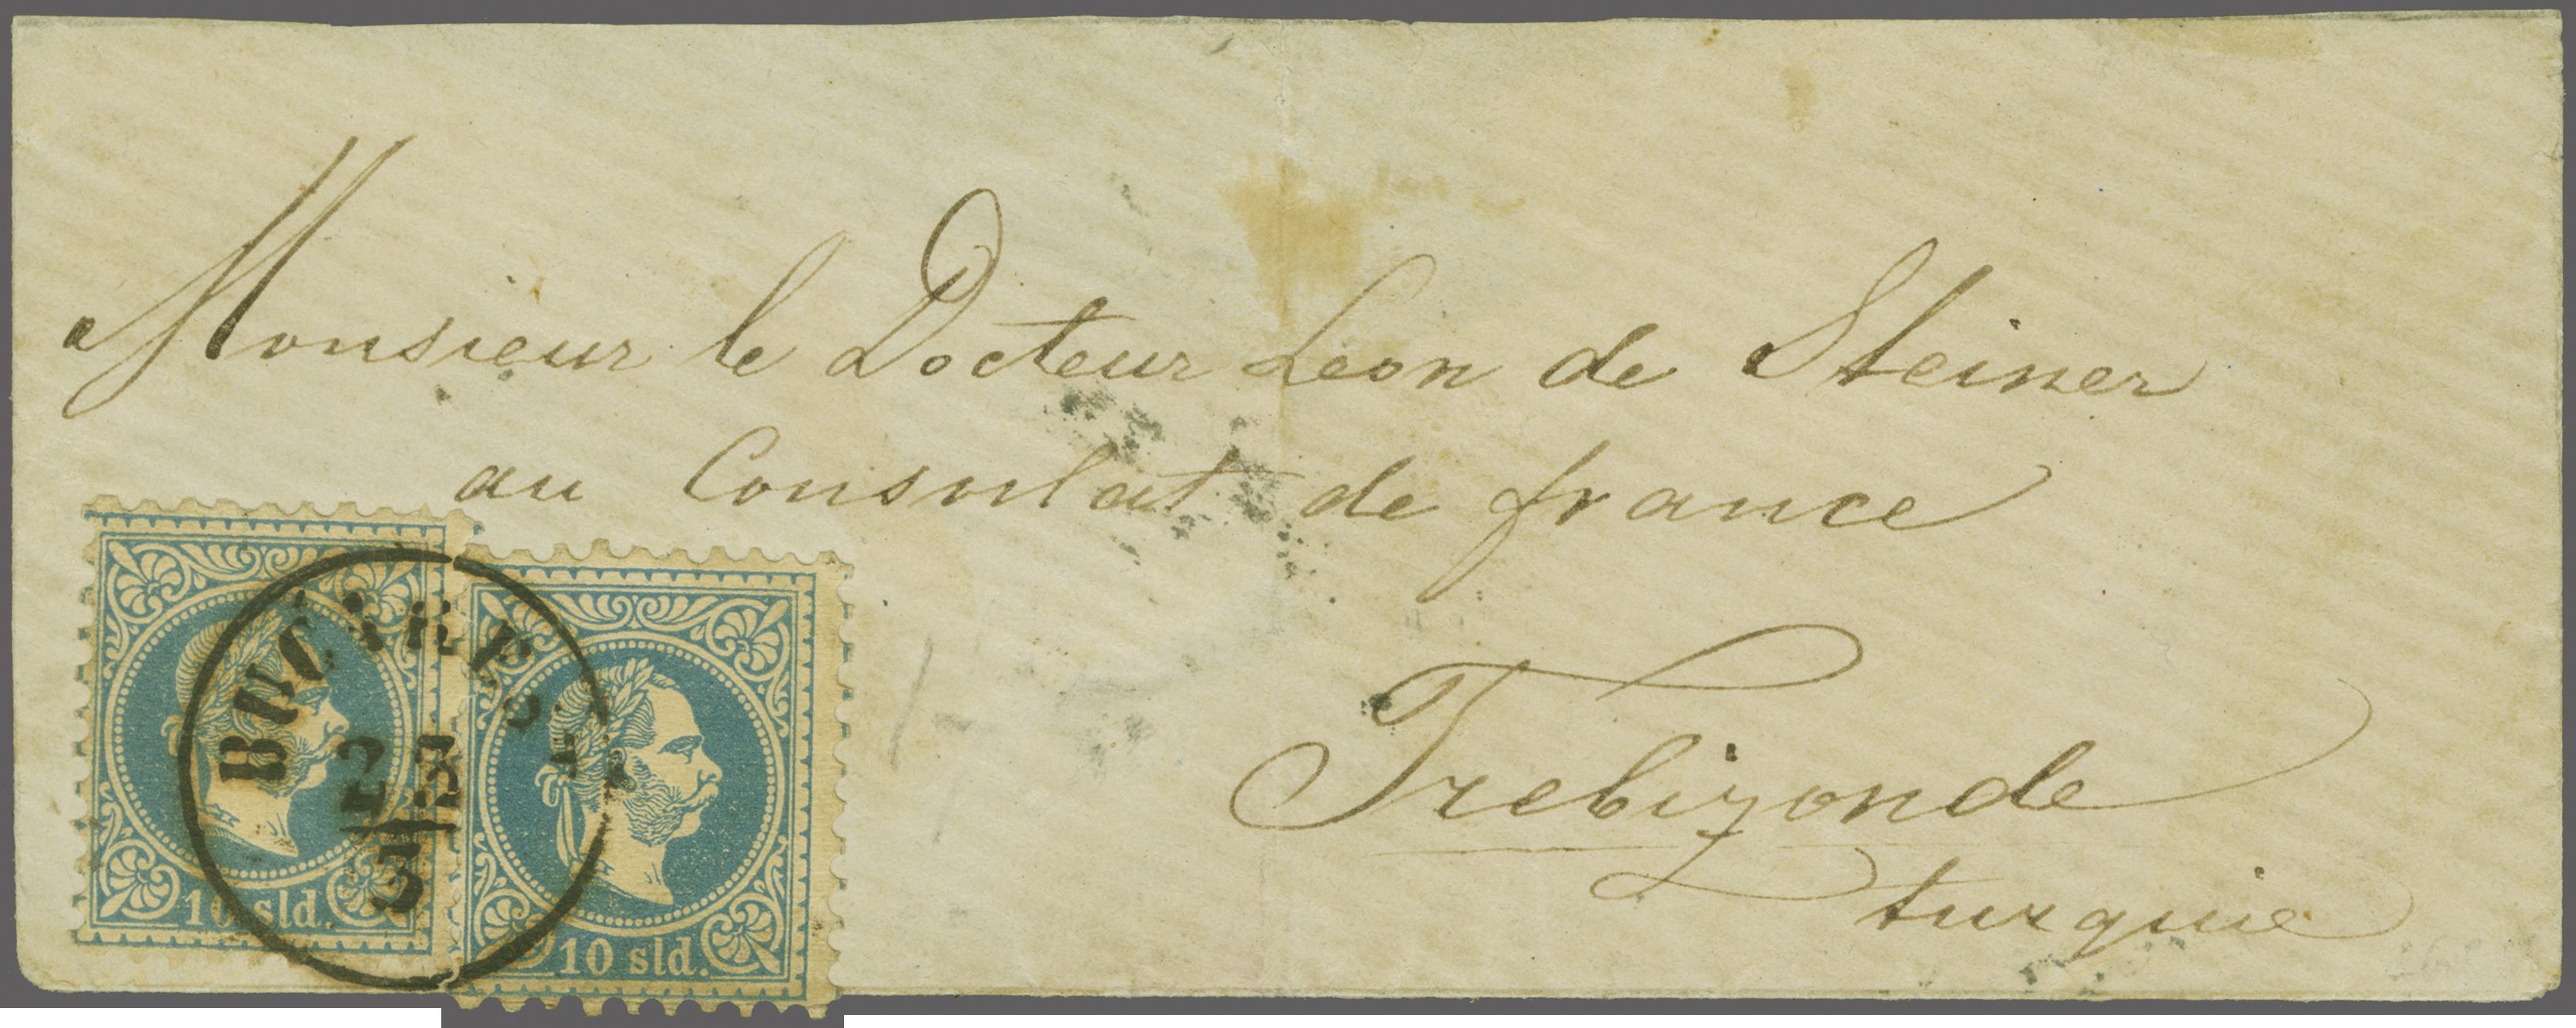 Monsieur le Docteur Leon de Steiner
au Consulat de france
Trebizonde
turquie
BUCAREST
23
3
10 sld.
10 sld.